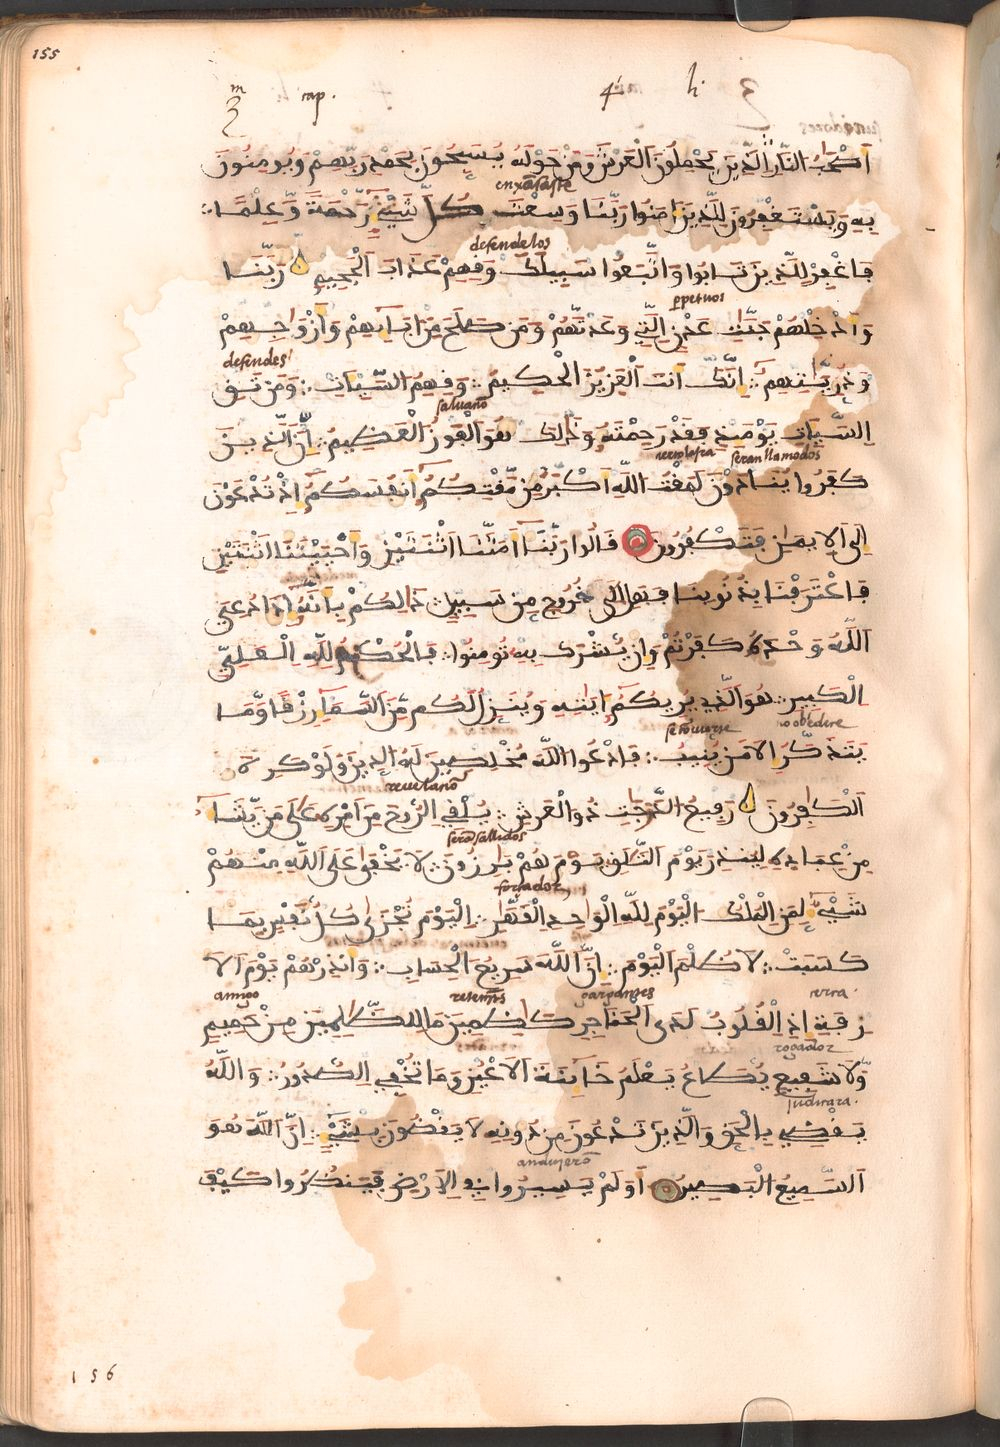 155
m cap. 4 li
أَصْحَٰبُ النَّارِ الَّذِينَ يَحْمِلُونَ الْعَرْشَ وَمَنْ حَوْلَهُ يُسَبِّحُونَ بِحَمْدِ رَبِّهِمْ وَيُومِنُونَ
enxãsaste
بِهِ وَيَسْتَغْفِرُونَ لِلَّذِينَ ءَامَنُوا رَبَّنَا وَسِعْتَ كُلَّ شَيْءٍ رَّحْمَةً وَعِلْمًا
defendelos
فَاغْفِرْ لِلَّذِينَ تَابُوا وَاتَّبَعُوا سَبِيلَكَ وَقِهِمْ عَذَابَ الْجَحِيمِ رَبَّنَا
ppetuos
وَأَدْخِلْهُمْ جَنَّٰتِ عَدْنٍ الَّتِي وَعَدتَّهُمْ وَمَن صَلَحَ مِنْ ءَابَائِهِمْ وَأَزْوَٰجِهِمْ
defendes
وَذُرِّيَّٰتِهِمْ إِنَّكَ أَنتَ الْعَزِيزُ الْحَكِيمُ وَقِهِمُ السَّيِّئَاتِ وَمَن تَقِ
saluaño
السَّيِّئَاتِ يَوْمَئِذٍ فَقَدْ رَحِمْتَهُ وَذَٰلِكَ هُوَ الْفَوْزُ الْعَظِيمُ إِنَّ الَّذِينَ
seran llamados
كَفَرُوا يُنَادَوْنَ لَمَقْتُ اللَّهِ أَكْبَرُ مِن مَّقْتِكُمْ أَنفُسَكُمْ إِذْ تُدْعَوْنَ
إِلَى الْإِيمَٰنِ فَتَكْفُرُونَ قَالُوا رَبَّنَا أَمَتَّنَا اثْنَتَيْنِ وَأَحْيَيْتَنَا اثْنَتَيْنِ
فَاعْتَرَفْنَا بِذُنُوبِنَا فَهَلْ إِلَىٰ خُرُوجٍ مِن سَبِيلٍ ذَٰلِكُمْ بِأَنَّهُ إِذَا دُعِيَ
اللَّهُ وَحْدَهُ كَفَرْتُمْ وَإِن يُشْرَكْ بِهِ تُومِنُوا فَالْحُكْمُ لِلَّهِ الْعَلِيِّ
الْكَبِيرِ هُوَ الَّذِي يُرِيكُمْ ءَايَٰتِهِ وَيُنَزِّلُ لَكُم مِّنَ السَّمَاءِ رِزْقًا وَمَا
se cõuierte no obedire
يَتَذَكَّرُ إِلَّا مَن يُنِيبُ فَادْعُوا اللَّهَ مُخْلِصِينَ لَهُ الدِّينَ وَلَوْ كَرِهَ
reuelaño
الْكَٰفِرُونَ رَفِيعُ الدَّرَجَٰتِ ذُو الْعَرْشِ يُلْقِي الرُّوحَ مِنْ أَمْرِهِ عَلَىٰ مَن يَّشَاءُ
serã sallidos
مِنْ عِبَادِهِ لِيُنذِرَ يَوْمَ التَّلَاقِ يَوْمَ هُمْ بَٰرِزُونَ لَا يَخْفَىٰ عَلَى اللَّهِ مِنْهُمْ
forçador
شَيْءٌ لِمَنِ الْمُلْكُ الْيَوْمَ لِلَّهِ الْوَٰحِدِ الْقَهَّارِ الْيَوْمَ تُجْزَىٰ كُلُّ نَفْسٍ بِمَا
كَسَبَتْ لَا ظُلْمَ الْيَوْمَ إِنَّ اللَّهَ سَرِيعُ الْحِسَابِ وَأَنذِرْهُمْ يَوْمَ الْأ
amigo gargantes
زِفَةِ إِذِ الْقُلُوبُ لَدَى الْحَنَاجِرِ كَٰظِمِينَ مَا لِلظَّٰلِمِينَ مِنْ حَمِيمٍ
rogador
وَلَا شَفِيعٍ يُطَاعُ يَعْلَمُ خَائِنَةَ الْأَعْيُنِ وَمَا تُخْفِي الصُّدُورُ وَاللَّهُ
judgara.
يَقْضِي بِالْحَقِّ وَالَّذِينَ تَدْعُونَ مِن دُونِهِ لَا يَقْضُونَ بِشَيْءٍ إِنَّ اللَّهَ هُوَ
anduuierõ
السَّمِيعُ الْبَصِيرُ أَوَلَمْ يَسِيرُوا فِي الْأَرْضِ فَيَنظُرُوا كَيْفَ
156